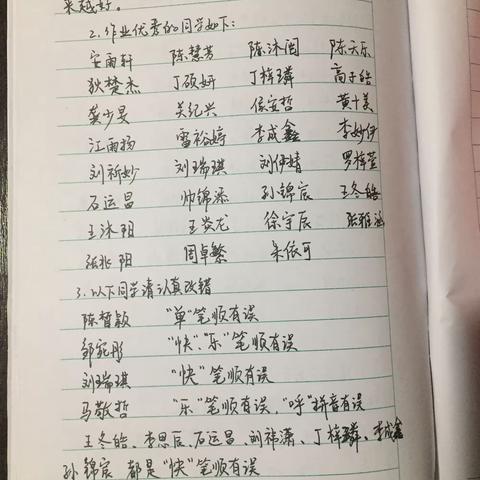 来越好。
2.作业优秀的同学如下:
安雨轩 陈慧芳 陈沐阅 陈天乐
狄楚杰 丁硕妍 丁梓璘 高子皓
龚少旻 关纪兴 侯安哲 黄十美
江雨扬 雷裕婷 李成鑫 李妙伊
刘祈妙 刘瑞琪 刘伊婧 罗梓萱
石运昌 帅锦添 孙锦宸 王冬皓
王沐阳 王炎龙 徐宇辰 张雅涵
张兆阳 周卓繁 朱依可
3.以下同学请认真改错
陈皙颖 “单”笔顺有误
邹宛彤 “快”、“乐”笔顺有误
刘瑞琪 “快”笔顺有误
马敬哲 “乐”笔顺有误,“呼”拼音有误
王冬皓、李思辰、石运昌、刘祎潇、丁梓璘、李成鑫
孙锦宸 都是“快”笔顺有误